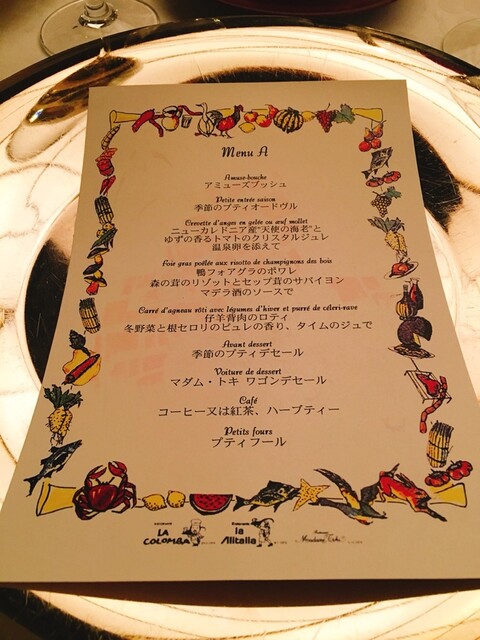 Menu A
Amuse-bouche
アミューズブッシュ
Petite entrée saison
季節のプティオードヴル
Crevette d'anges en gelée ou œuf mollet
ニューカレドニア産"天使の海老"と
ゆずの香るトマトのクリスタルジュレ
温泉卵を添えて
Foie gras poêlée aux risotto de champignons des bois
鴨フォアグラのポワレ
森の茸のリゾットとセップ茸のサバイヨン
マデラ酒のソースで
Carré d'agneau rôti avec légumes d'hiver et purré de céleri-rave
仔羊背肉のロティ
冬野菜と根セロリのピュレの香り、タイムのジュで
Avant dessert
季節のプティデセール
Voiture de dessert
マダム・トキ ワゴンデセール
Café
コーヒー又は紅茶、ハーブティー
Petits fours
プティフール
LA COLOMBA
la Alitalia
Madame Toki